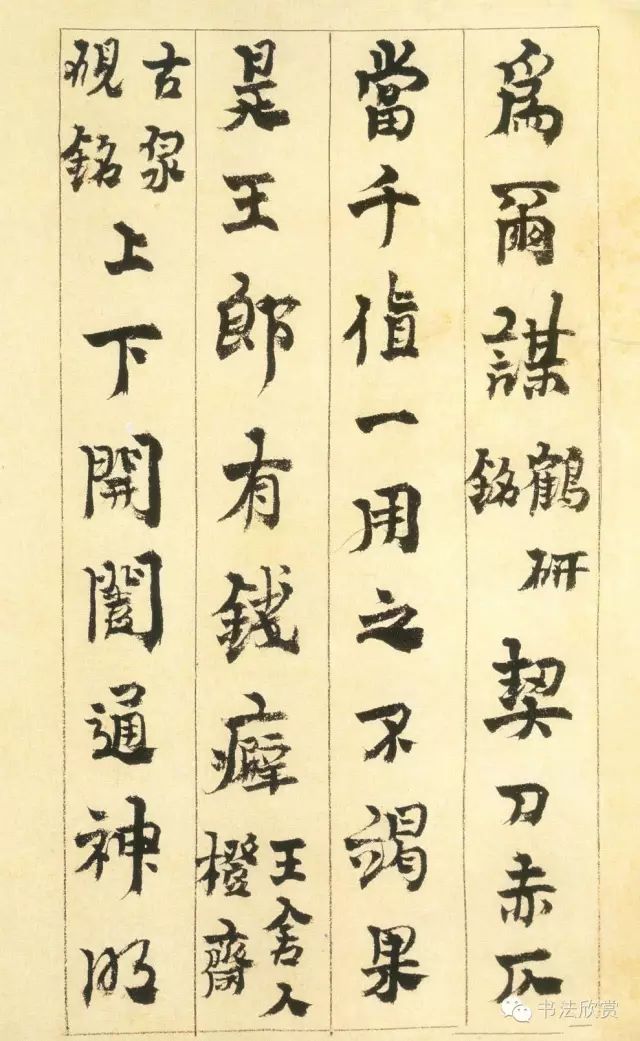 爲爾謀鶴研銘契刀赤仄
當千值一用之不竭果
是王郎有錢癖王舍人橙齋
古泉硯銘上下開闔通神明
书法欣赏